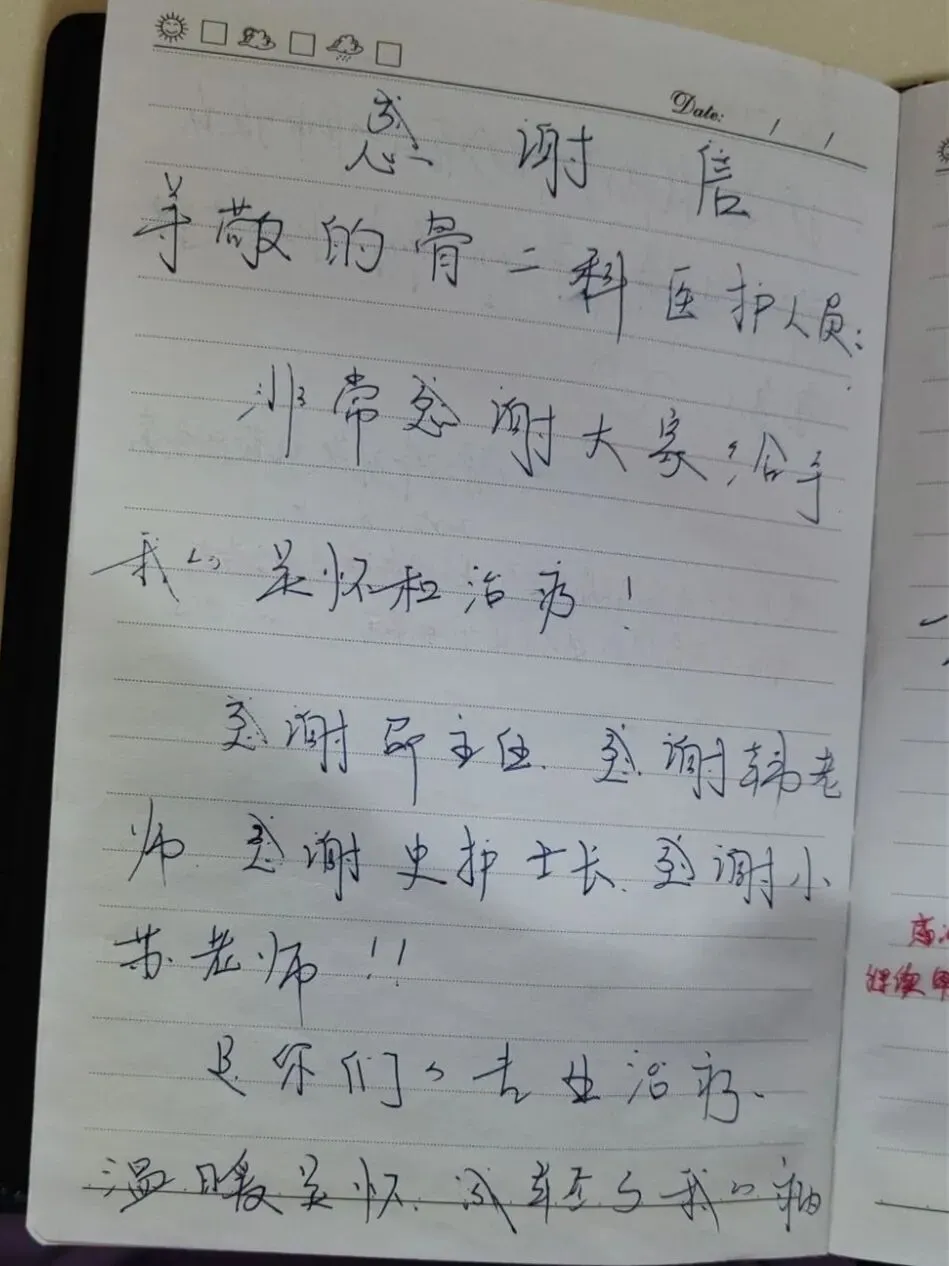 Date: / /
感谢信
尊敬的骨二科医护人员:
非常感谢大家,给予
我的关怀和治疗!
感谢邵主任、感谢韩老
师、感谢史护士长、感谢小
苏老师!!
是你们的专业治疗、
温暖关怀、减轻了我的